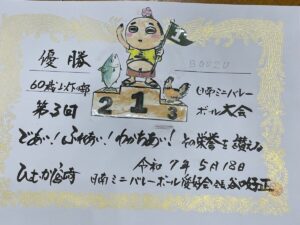 優勝
60歳以上の部
第3回
日南ミニバレー
ボール大会
2 1 3
であい!ふれあい!わかちあい! その栄誉を讃える
令和7年5月18日
ひむか宮崎 日南ミニバレーボール愛好会